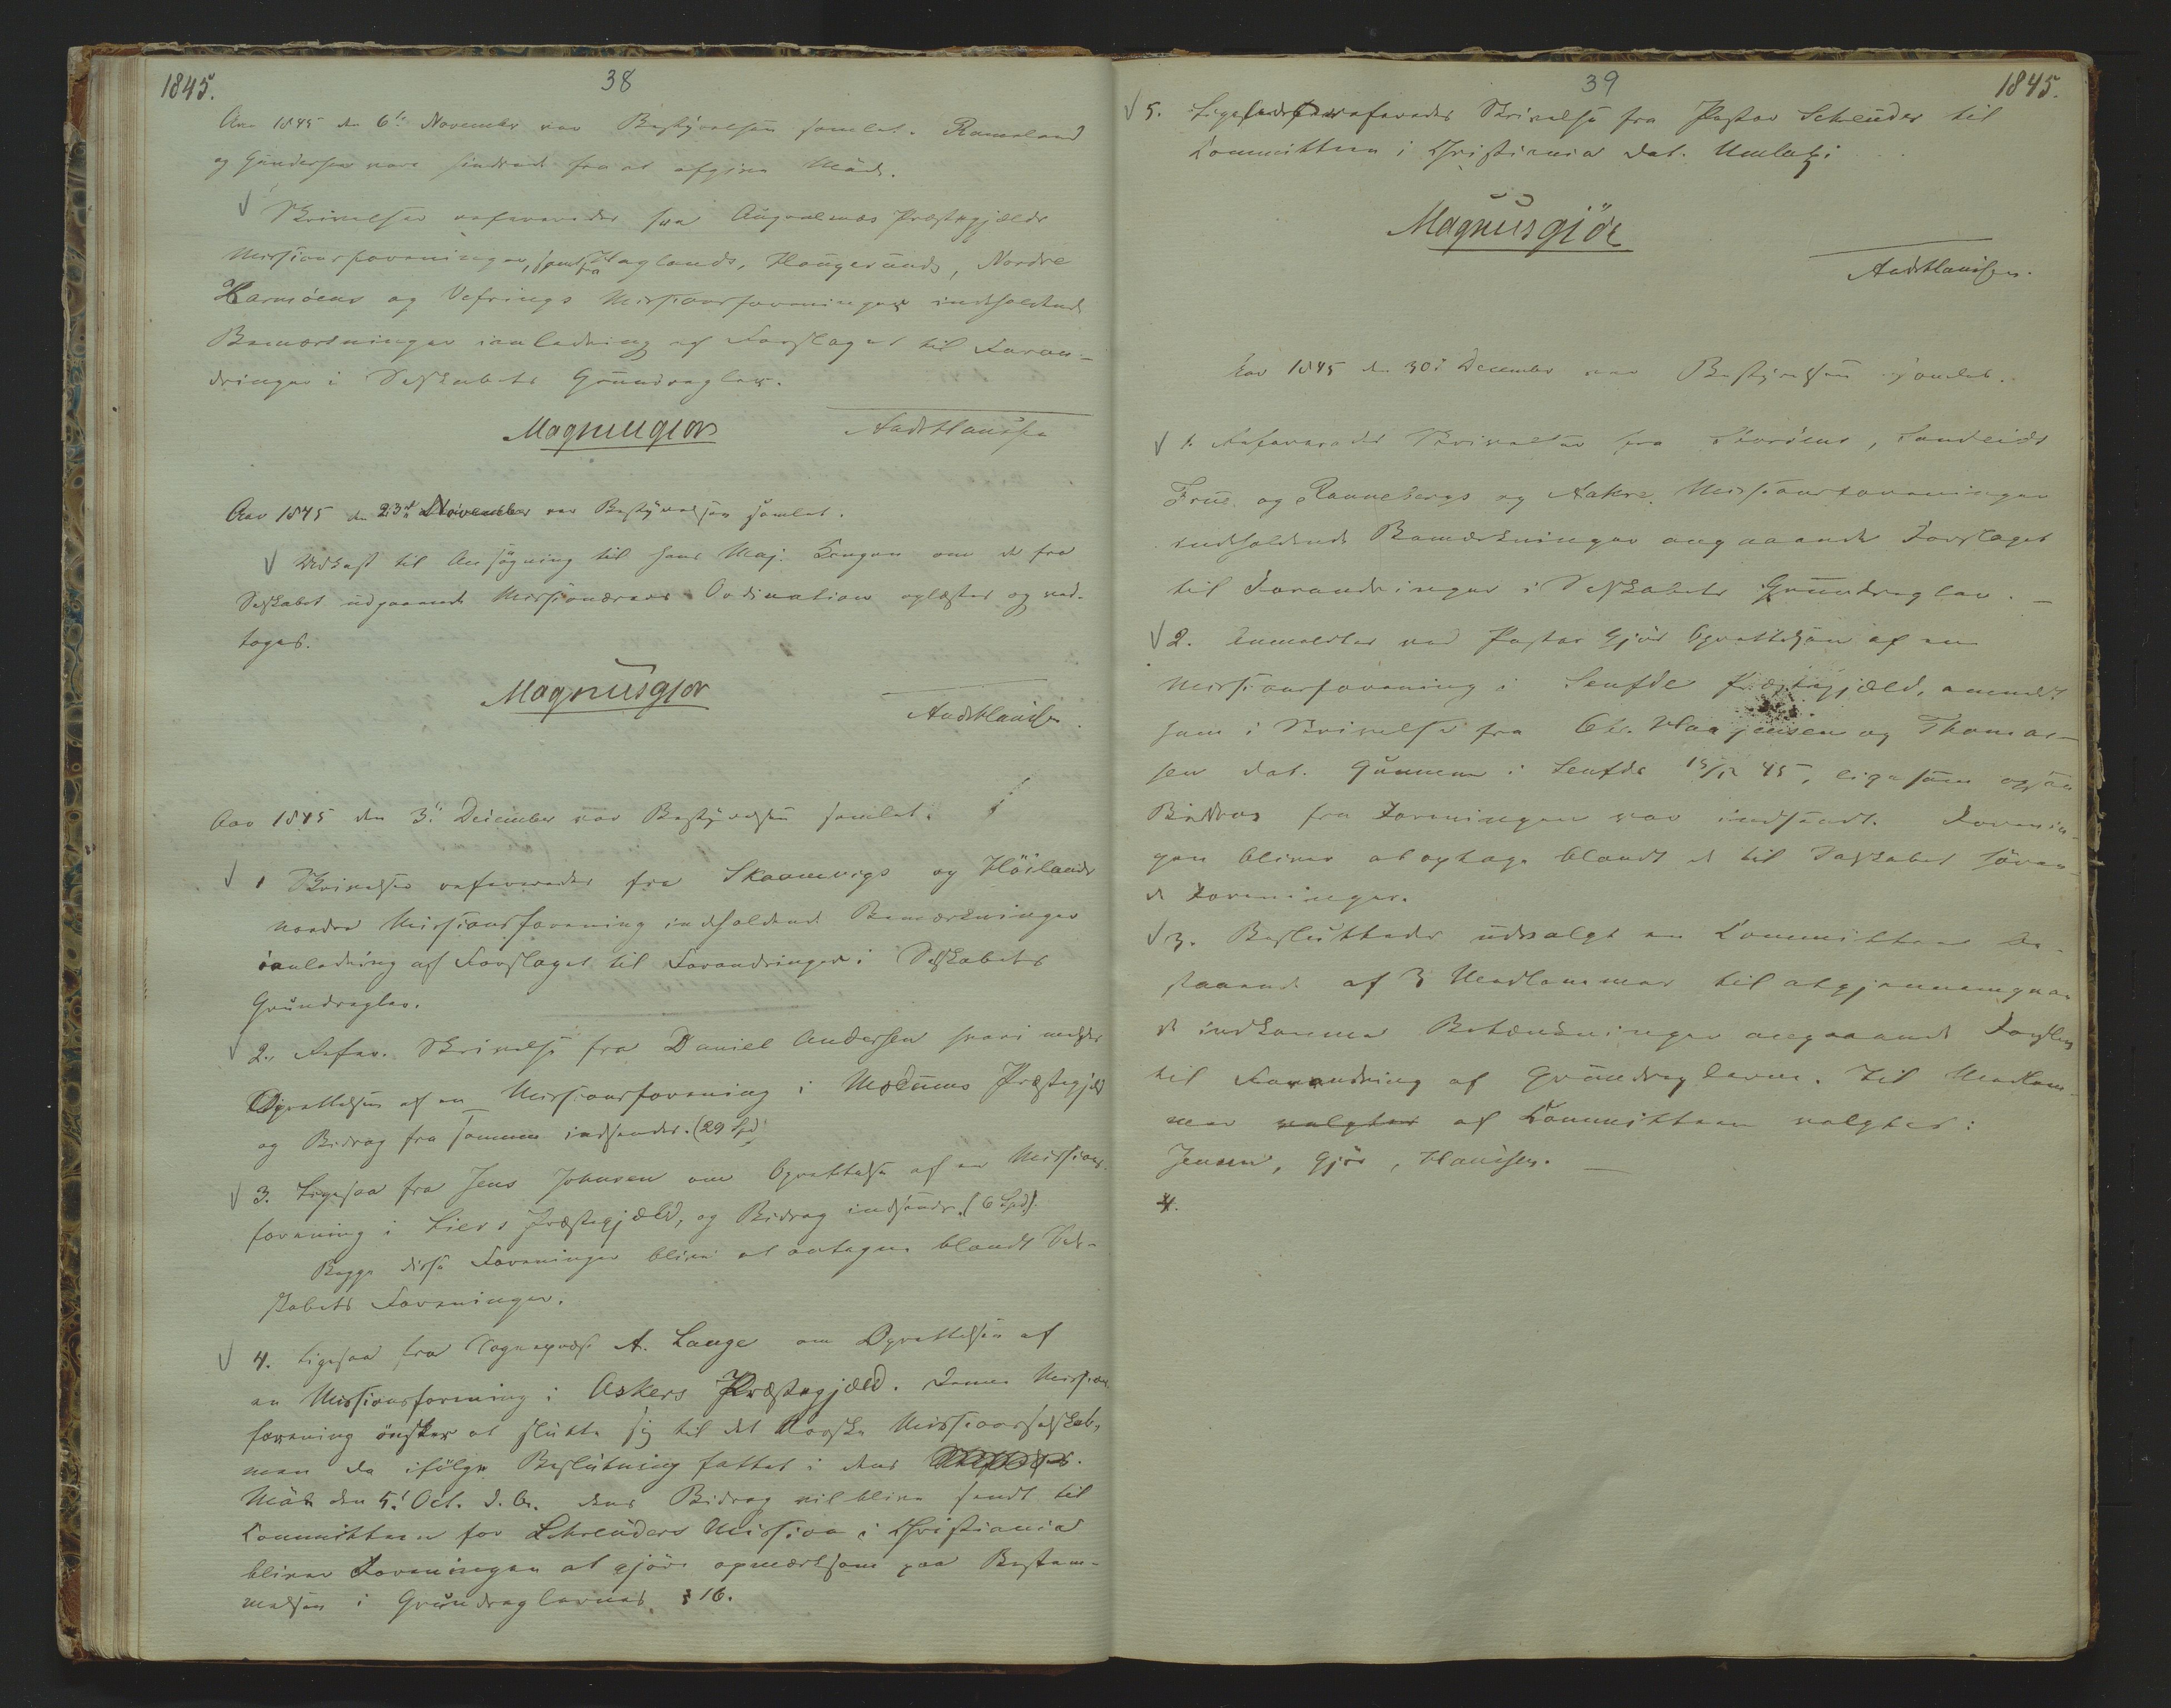 1845.
38
Aar 1845 den 6te November var Bestyrelsen samlet. Rameland
og Gundersen vare hindrede fra at afgive Møde.
Skrivelser refereredes fra Augvalnæs Præstegjelds
Missionsforeninger, samt fra Haglands, Haugesunds, Nordre
Karmöens og Vefrings Missionsforeninger indholdende
Bemærkninger ianledning af Forslaget til Foran-
dringer i Selskabets Grundregler.
Magnus Gjør
Andr Hauge
Aar 1845 den 23de November var Bestyrelsen samlet.
Udkast til Ansøgning til Hans Maj. Kongen om de fra
Selskabet udgaaende Missionærers Ordination oplæstes og ved-
toges.
Magnus gjør
Aar 1845 den 3die December var Bestyrelsen samlet.
1 Skrivelser refereredes fra Skaanevigs og Höilands
nordre Missionsforening indholdende Bemærkninger
ianledning af Forslaget til Forandringer i Selskabets
Grundregler.
2. Refer. Skrivelse fra Daniel Andersen hvori meldes
Oprettelsen af en Missionsforening i Modums Præstegjeld
og Bidrag fra samme indsendes. (29 Spd)
3. Ligesaa fra Jens Johnsen om Oprettelse af en Missions-
forening i Liers Præstegjæld, og Bidrag indsendes. (6 Spd).
Begge disse Foreninger bliver at antages blandt Sel-
skabets Foreninger.
4. Ligesaa fra Sognepræst A. Lange om Oprettelsen af
en Missionsforening i Askers Præstegjæld. Denne Missions
forening ønsker at slutte sig til det Norske Missionsselskab,
men da ifølge Beslutning fattet i dens
Møde den 5te Oct. d. A. dens Bidrag vil blive sendt til
Committeen for Schreuders Mission i Christiania
bliver Foreningen at gjøre opmærksom paa Bestem-
melsen i Grundreglernes § 16.
39
1845.
5. Ligesaa refereredes Skrivelse fra Pastor Schreuder til
Committeen i Christiania dat. Umlazi
Magnus gjör
Aar 1845 den 30te December var Bestyrelsen samlet.
1. Refereredes Skrivelser fra Storöens, Sandeids
Frue og Rennebergs og Aakre Missionsforeninger
indholdende Bemærkninger angaaende Forslaget
til Forandringer i Selskabets Grundregler. —
2. Anmeldtes ved Pastor Gjör Oprettelsen af en
Missionsforening i Senfde Præstegjæld, anmeldt
som i Skrivelse fra Chr. Haajensen og Thomas-
sen dat. Gunnem i Senfde 15/12 45, ligesom ogsaa
Bidrag fra Foreningen var indsendt. Forenin-
gen bliver at optage blandt de til Selskabet hören-
de Foreninger.
3. Besluttedes udvalgt en Committee be-
staaende af 3 Medlemmer til at gjennemgaae
de indkomne Betænkninger angaaende Forslag
til Forandring af Grundreglerne. Til Medlem-
mer valgtes af Committeen valgtes:
Jensen, Gjör, Hauge. —
4.